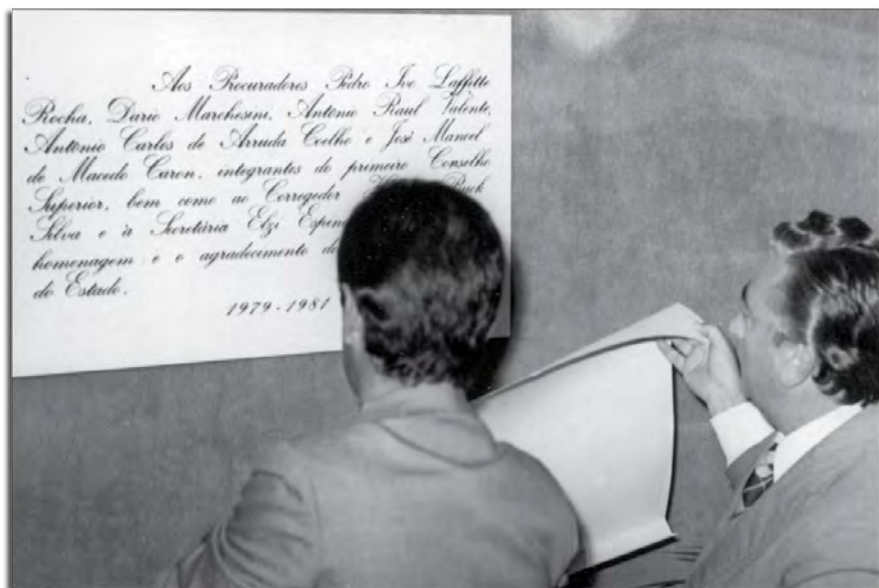 Aos Procuradores Pedro Ivo Laffitte
Rocha, Dario Marchesini, Antônio Raul Valente,
Antônio Carlos de Arruda Coelho e José Manoel
de Macedo Caron, integrantes do primeiro Conselho
Superior, bem como ao Corregedor Ruck
Silva e à Secretária Elzi
homenagem e o agradecimento
do Estado.
1979-1981